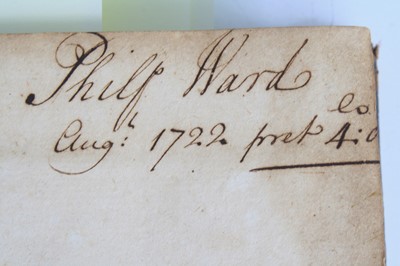 Philp Ward
Augt: 1722. pret 4:0